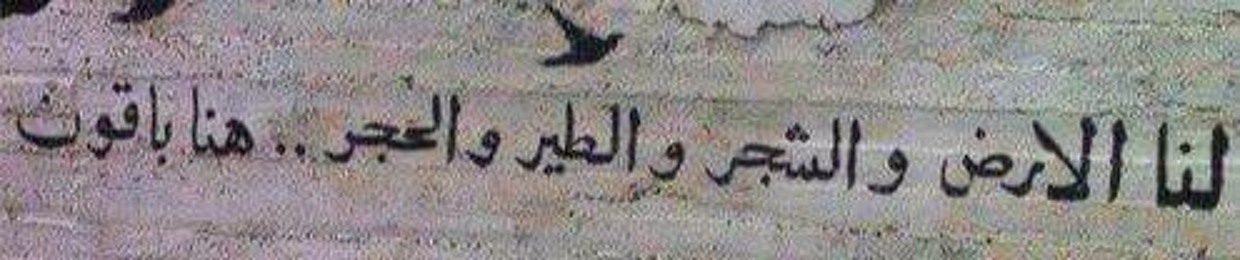 لنا الارض و الشجر و الطير والحجر .. هنا باقون